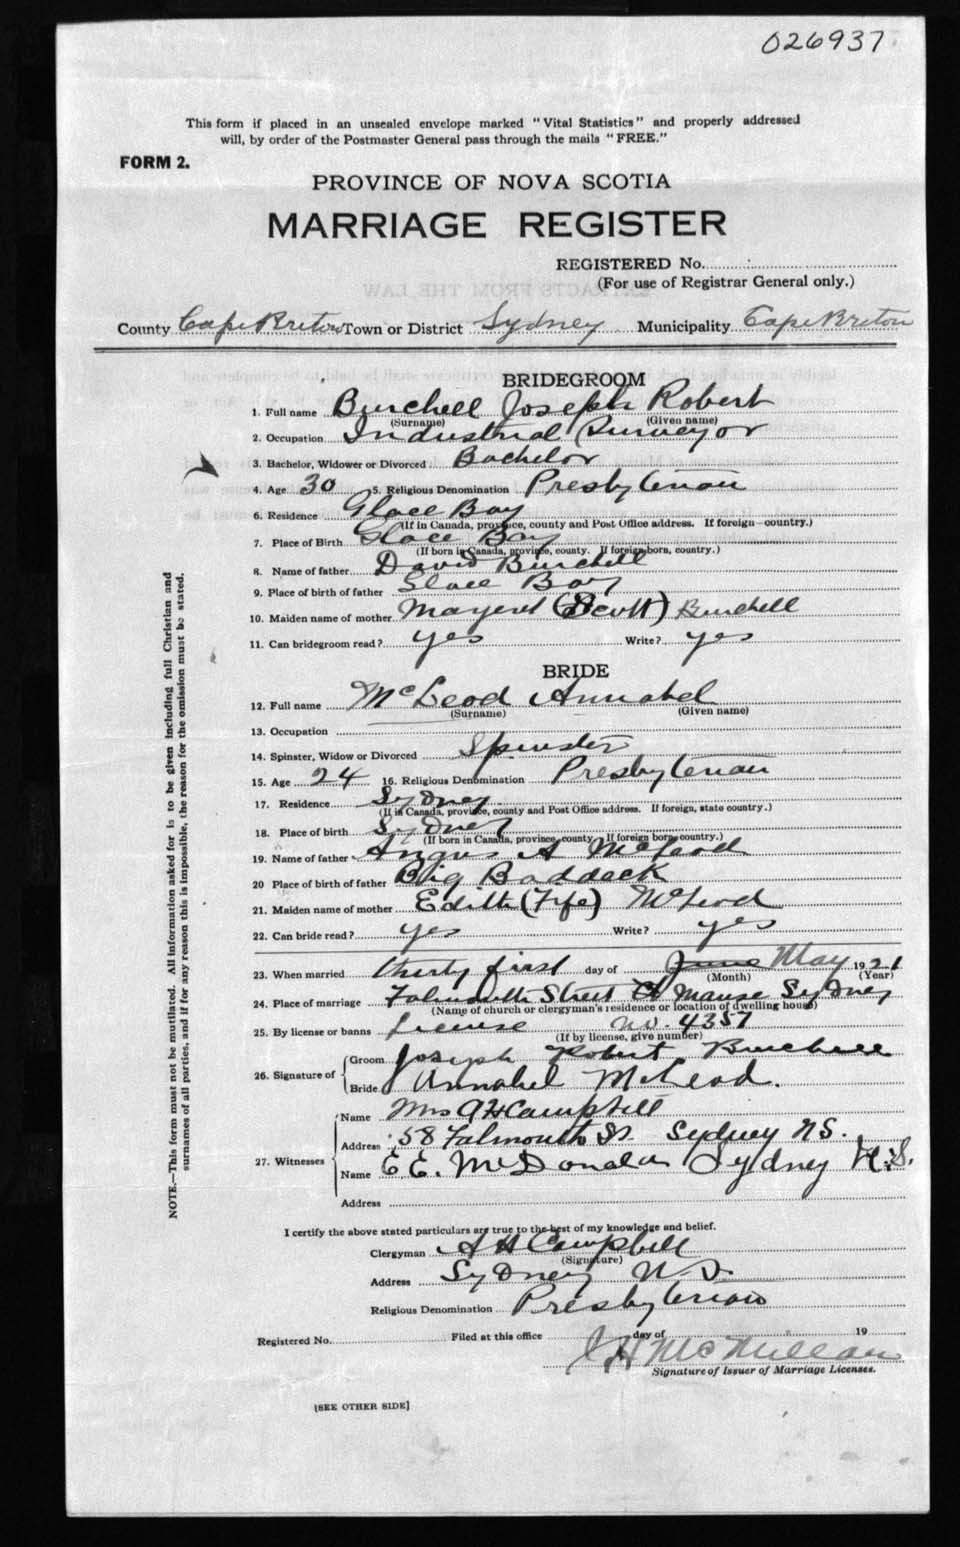 026937
This form if placed in an unsealed envelope marked "Vital Statistics" and properly addressed
will, by order of the Postmaster General pass through the mails "FREE."
FORM 2.
PROVINCE OF NOVA SCOTIA
MARRIAGE REGISTER
REGISTERED No.
(For use of Registrar General only.)
County Cape Breton Town or District Sydney Municipality Cape Breton
BRIDEGROOM
1. Full name Burchell Joseph Robert
(Surname) (Given name)
2. Occupation Industrial Surveyor
3. Bachelor, Widower or Divorced Bachelor
4. Age 30 5. Religious Denomination Presbyterian
6. Residence Glace Bay
(If in Canada, province, county and Post Office address. If foreign—country.)
7. Place of Birth Glace Bay
(If born in Canada, province, county. If foreign born, country.)
8. Name of father David Burchell
9. Place of birth of father Glace Bay
10. Maiden name of mother Margret (Scott) Burchell
11. Can bridegroom read? yes Write? yes
BRIDE
12. Full name McLeod Annabel
(Surname) (Given name)
13. Occupation
14. Spinster, Widow or Divorced Spinster
15. Age 24 16. Religious Denomination Presbyterian
17. Residence Sydney
(If in Canada, province, county and Post Office address. If foreign, state country.)
18. Place of birth Sydney
(If born in Canada, province, county. If foreign born, country.)
19. Name of father Angus A McLeod
20 Place of birth of father Big Baddeck
21. Maiden name of mother Edith (Fife) McLeod
22. Can bride read? yes Write? yes
23. When married thirty first day of June May 1921
(Month) (Year)
24. Place of marriage Falmouth Street Ch Manse Sydney
(Name of church or clergyman's residence or location of dwelling house)
25. By license or banns license no. 4357
(If by license, give number)
26. Signature of Groom Joseph Robert Burchell
Bride Annabel McLeod.
27. Witnesses
Name Mrs A H Campbell
Address 58 Falmouth St. Sydney N S.
Name E. E. McDonald Sydney N.S.
Address
I certify the above stated particulars are true to the best of my knowledge and belief.
Clergyman A H Campbell
(Signature)
Address Sydney N S
Religious Denomination Presbyterian
Registered No. Filed at this office day of 19
J H McMillan
Signature of Issuer of Marriage Licenses.
[SEE OTHER SIDE]
NOTE.—This form must not be mutilated. All information asked for is to be given including full Christian and
surnames of all parties, and if for any reason this is impossible, the reason for the omission must be stated.